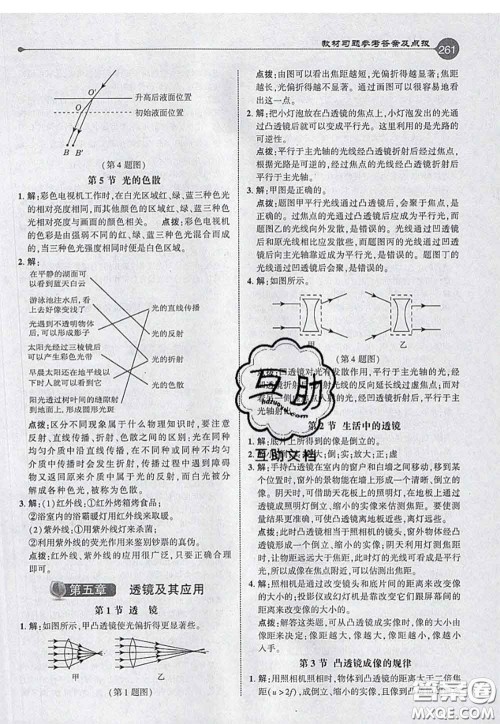 教材习题参考答案及点拨
261
O′
O
升高后液面位置
初始液面位置
B B′
(第4题图)
第5节 光的色散
1. 解:彩色电视机工作时,在白光区域红、绿、蓝三种色光
的相对亮度相同,而其他颜色的区域红、绿、蓝三种色光
相对亮度与画面的颜色相关。
点拨:电视机的
色彩是由强弱不同的红、绿、蓝三种色光混合而成的,
当三种色光强度相同时便是白色区域。
2. 解:
在平静的湖面可
以看到蓝天白云
游泳池注水后,看
上去好像变浅了
光遇到不透明物体
后,可以形成影子
太阳光经过三棱镜
后,可以形成彩虹
早晨太阳还在地平线以
下时人就可以看到它
阳光经过树叶间的缝隙射
到地面上,形成圆形光斑
光的直线传播
光的反射
光的折射
光的色散
点拨:区分不同现象属于什么物理知识时,要注意
反射、直线传播、折射、色散之间的区别。光为什么
沿直线传播,是因为在同种均匀介质中;遇到障碍
物又返回原来介质中的现象是光的反射;而白光被
分解成各种色光,被称为光的色散。
3. 解:(1)红外线:①红外烤箱烤食品;
②浴室内的浴霸暖灯用来取暖。
(2)紫外线:①利用紫外线灯杀菌;
②利用紫外线的荧光作用来鉴别钞票的真伪。
点拨:红外线、紫外线的应用很广泛,只要正确合
理即可。
第五章 透镜及其应用
第1节 透 镜
1. 解:如图所示,甲凸透镜使光偏折得更显著些。
甲 乙
(第1题图)
点拨:由图可以看出焦距越短,光偏折得越显著;焦距
越长,光偏折得越不显著。通过画图可以很容易地看
出这一点。
2. 解:把小灯泡放在凸透镜的焦点上,小灯泡发出的光通
过凸透镜后就会变为平行光。这里利用的是光路的可
逆性。
点拨:平行于主光轴的光线经凸透镜折射后经过焦点,
根据光路是可逆的,经过焦点的光线经凸透镜折射后
平行于主光轴。
3. 解:甲图是正确的。
点拨:题图甲平行光线通过凸透镜后,会聚于焦点上,
是正确的;题图乙平行光线通过凸透镜后应会聚于焦
点,而题图乙中凸透镜折射后成平行光,是错误的;题图丙
的光线向外发散,是错误的;题图丁中通过凹透镜后的
光线和原来相比应当向外发散,而题图丁中通过凹透
镜后向主光轴靠近了些,会聚了,是错误的。
4. 解:如图所示。
甲 乙
(第4题图)
点拨:凹透镜对光有发散作用,平行于主光轴的光线经凹
透镜折射后折射光线的反向延长线经过焦点;射向另一侧
焦点的光线经凹透镜折射后,折射光线平行于主
光轴射出。
第2节 生活中的透镜
1. 解:底片上所得到的像是倒立的。
2. 解:倒立;缩小;实;放大;正;虚
3. 解:手持凸透镜在室内的窗户和白墙之间移动,在白墙
上可以看到室内外的景物倒立、缩小的实像。当透镜靠近
窗户时,窗外的景物能在墙上形成一个倒立、缩小的实
像。阴天时,可借助天花板上的照明灯,在地板上通过
凸透镜可呈现灯的像。晴天时,可借助太阳光在地上
呈现太阳的像,使凸透镜向地面接近些,离地面远些。
点拨:凸透镜的焦距比照相机的镜头,窗外物体经凸
透镜呈现一个倒立、缩小的实像。阴天利用灯照射时,
让灯到凸透镜的距离大于焦距,此时在另一侧能得到
倒立的实像。
4. 解:照相机是通过改变镜头和底片间的距离来改变像
的大小的;投影仪和幻灯机是靠改变它们跟屏幕间的
距离来改变像的大小的。
点拨:解答这类题,可从成实像时,物体越靠近焦点,
像越大,像距也越大;物体越远离焦点,像越小,像距也
越小来分析。
第3节 凸透镜成像的规律
1. 解:用照相机照相时,物体到镜头的距离大于二倍焦
距(u>2f),成倒立、缩小的实像,像成在镜头的
互助
互助文档
hdzuoye.com
答案圈
MXQE.COM